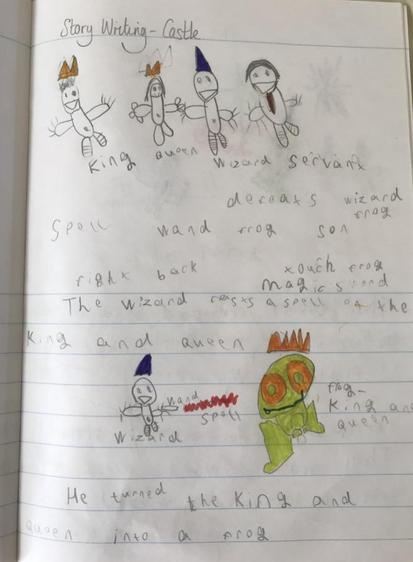 Story Writing - Castle
King queen wizard servant
defeats wizard
frog
Spell wand frog son
right back touch frog
magic sand
The wizard casts a spell on the
King and queen
wand
spell
wizard
frog-
King and
queen
He turned the King and
queen into a frog